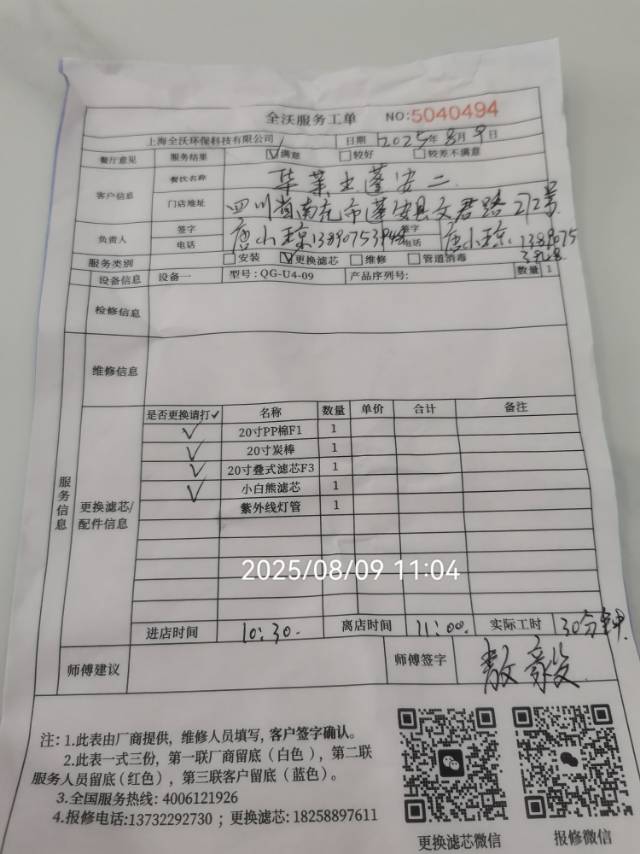 全沃服务工单 NO:5040494
上海全沃环保科技有限公司 日期 2025年8月9日
餐厅意见 服务结果 ☑满意 □较好 □较差不满意
客户信息 餐饮名称 华莱士蓬安二
门店地址 四川省南充市蓬安县文君路272号
负责人 签字 唐小琼 签字 唐小琼
电话 电话
服务类别 □安装 ☑更换滤芯 □维修 □管道消毒
设备信息 设备一 型号:QG-U4-09 产品序列号: 数量 1
检修信息
维修信息
服务信息
更换滤芯/配件信息
是否更换请打✓ 名称 数量 单价 合计 备注
✓ 20寸PP棉F1 1
✓ 20寸炭棒 1
✓ 20寸叠式滤芯F3 1
✓ 小白熊滤芯 1
紫外线灯管 1
2025/08/09 11:04
进店时间 10:30. 离店时间 11:00. 实际工时 30分钟
师傅建议 师傅签字
注: 1.此表由厂商提供, 维修人员填写, 客户签字确认。
2.此表一式三份, 第一联厂商留底 (白色), 第二联
服务人员留底 (红色), 第三联客户留底 (蓝色)。
3.全国服务热线: 4006121926
4.报修电话:13732292730 ; 更换滤芯: 18258897611
更换滤芯微信 报修微信